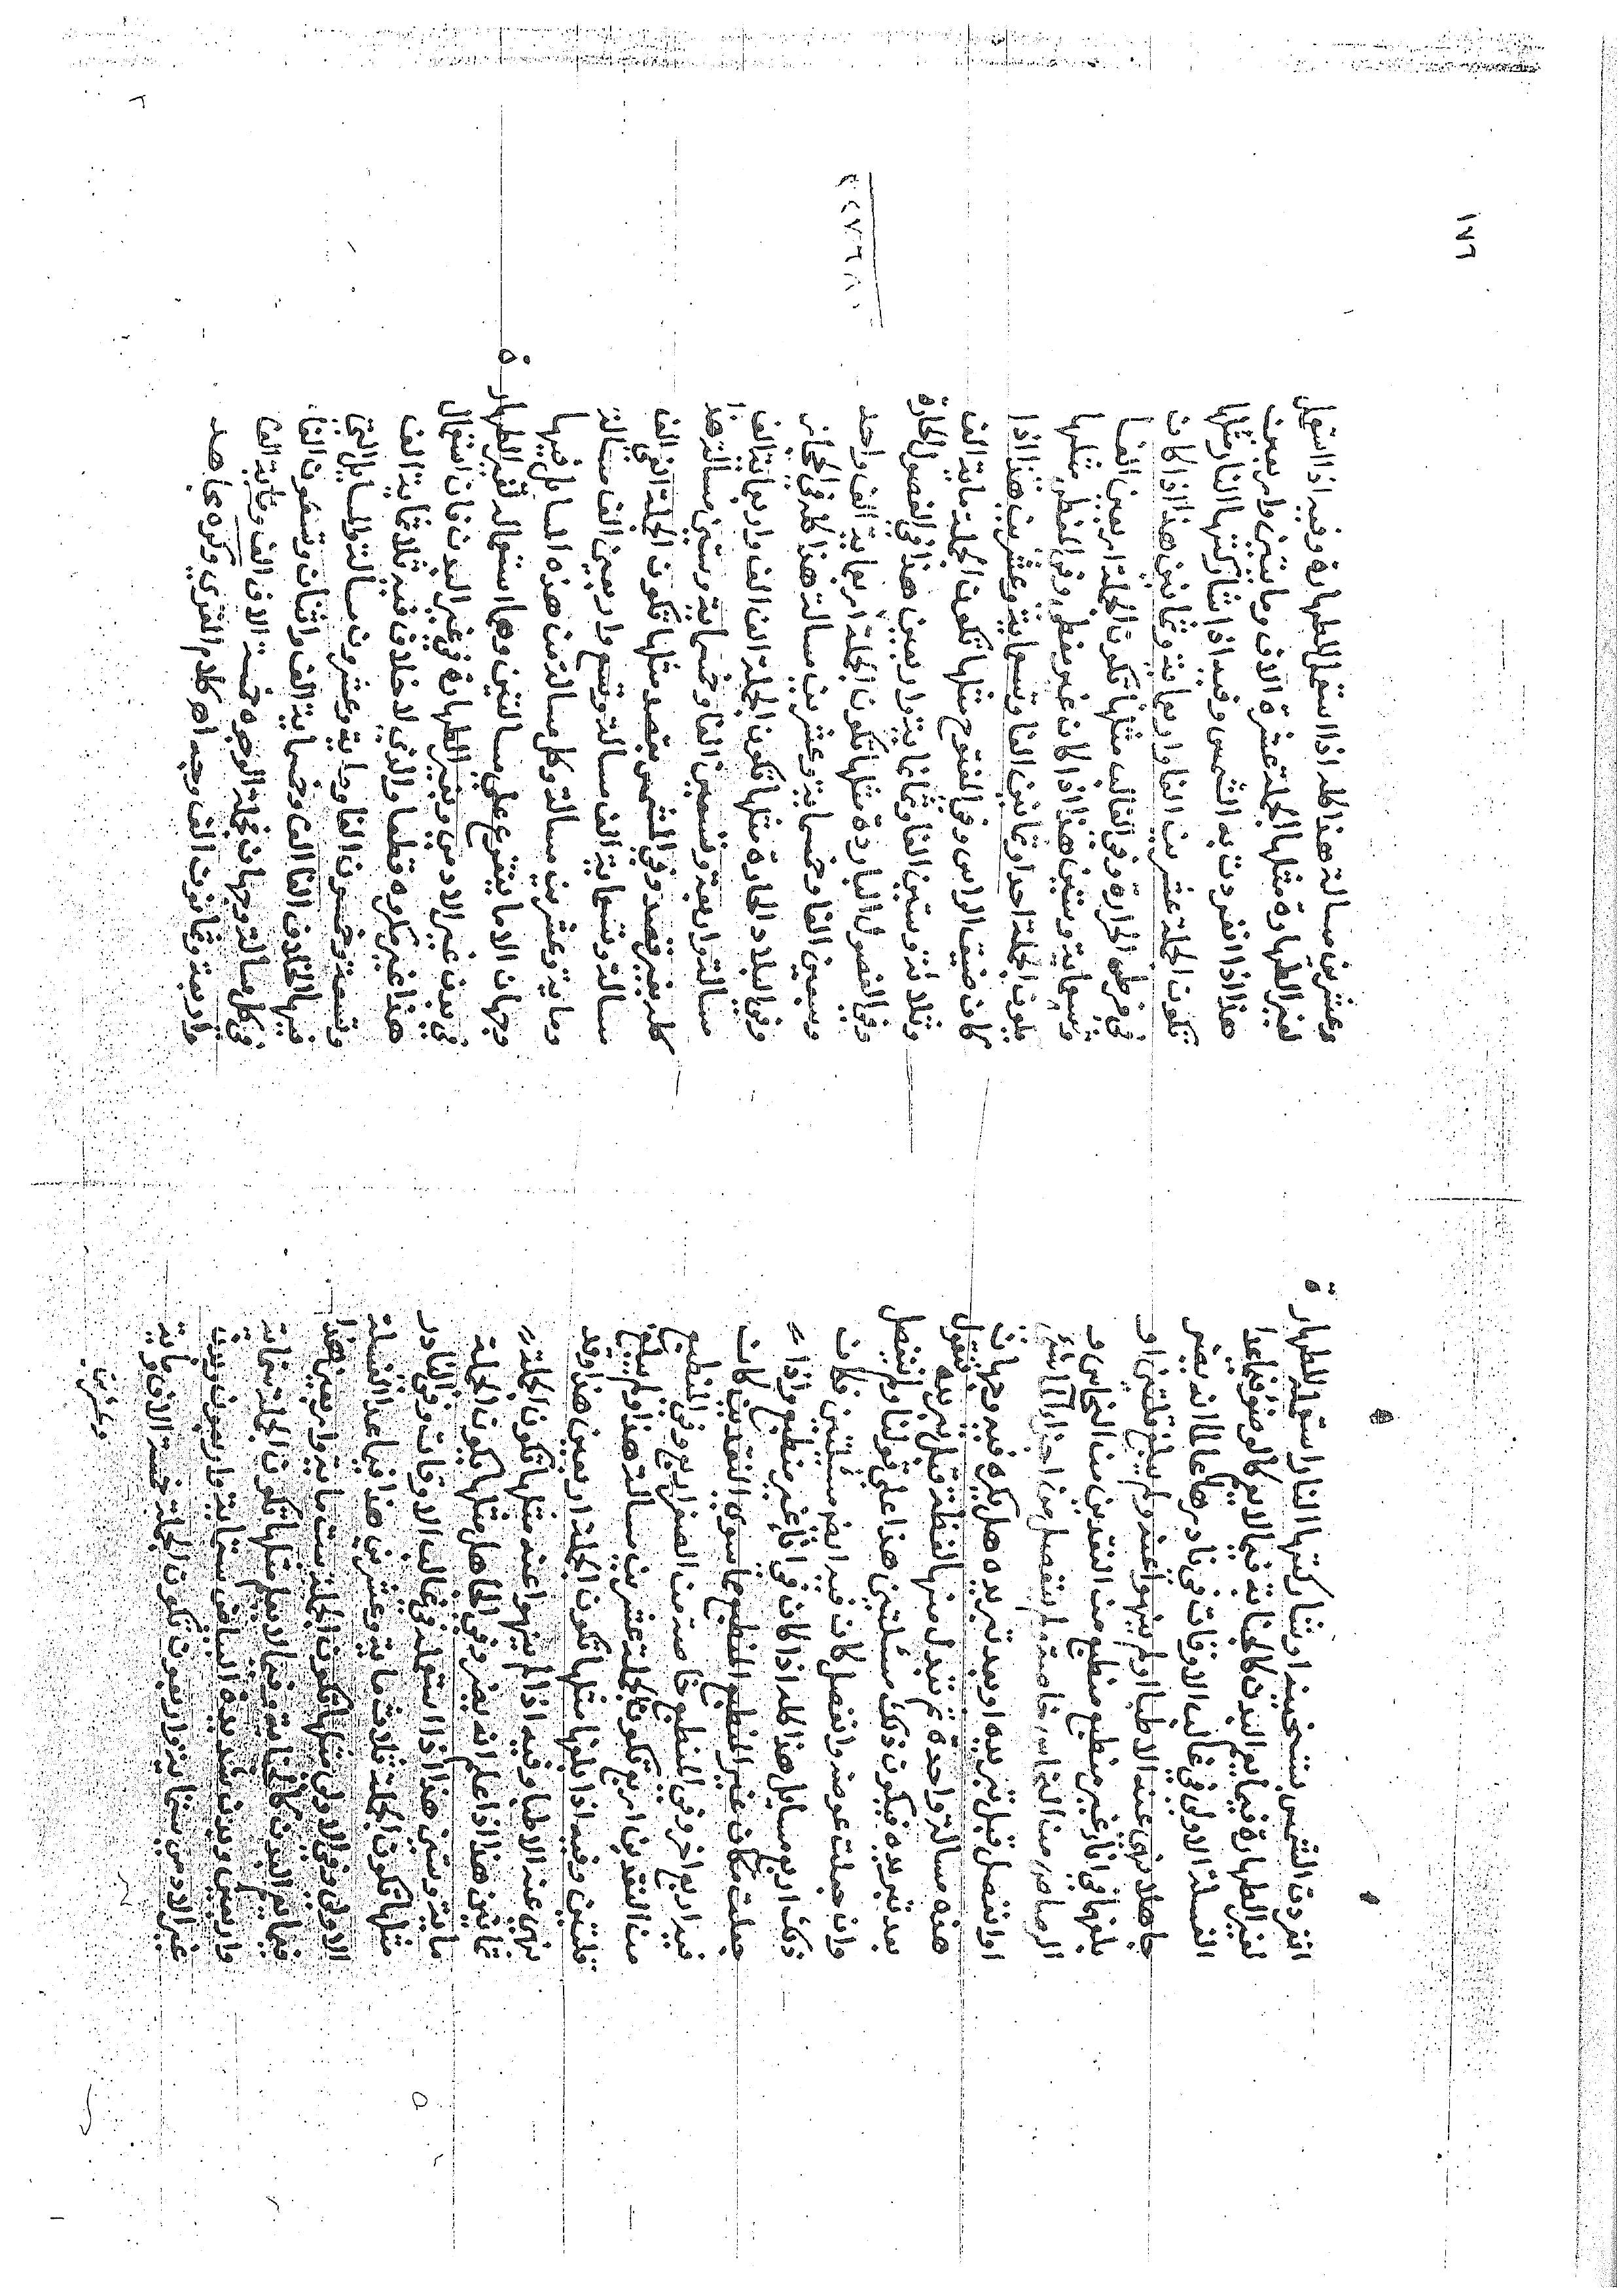 انفردت الشمس بتسخينه او شاركتها النار استعمله للطهارة
لغير الطهارة فيما يعم البدن كالجنابة فيما لا يعم كالوضوء فيما عدا
الغسلة الاولى في غالب الاوقات في نادرها عالما انه يضر
جاهلا نهي عنه الاطبا او لم ينهوا عنه ولم يبلغ قلتين او
بلغهما في اناء غير منطبع منطبع من النقدين من النحاس و
الرصاص من النحاس خاصة لم ينفصل من اجزاء الاناء شي
او انفصل قبل تبريده او بعد تبريده هل يكره فيه وجهان
هذه مسالة واحدة ثم تبدل منها لفظة قبل تبريده فتقول
بعد تبريده فيكون ذلك مسئلتين هذا على قولنا ولم ينفصل
وان جعلت عوضه وانفصل كان فيه ايضا مسئلتين فكان
ذلك اربع مسايل هذا كله اذا كان في اناء غير منطبع واذا
جعلت مكان غير المنطبع المنطبع ما سوى النقدين كان
فيه اربع اخر وفي المنطبع خاصة من الصفر اربع وفي المنطبع
من النقدين اربع تكون الجملة عشرين مسالة هذا ولم يبلغ
قلتين وفيه اذا بلغها مثلها تكون الجملة اربعين هذا وقد
نهي عنه الاطبا وفيه اذا لم ينهوا عنه مثلها تكون الجملة
ثمانين هذا اذا علم انه يضر وفي الجاهل مثلها يكون الجملة
ماية وستين هذا اذا استعمله في غالب الاوقات وفي النادر
مثلها تكون الجملة ثلاث ماية وعشرين هذا فيما عدا الغسلة
الاولى وفي الاولى مثلها تكون الجملة ست ماية واربعين هذا
فيما يعم البدن كالجنابة وفيما لا يعم مثلها تكون الجملة
واربعين وبدن شديدة البياض ستماية واربعون وبدن
غير الادمي ستماية واربعون تكون الجملة خمسة الاف وماية
وعشرين
١٧٦
وعشرين مسالة هذا كله اذا استعمل للطهارة وفيه اذا استعمل
لغير الطهارة مثلها الجملة عشرة الاف ومايتين واربعين
هذا اذا انفردت به الشمس وفيه اذا شاركتها النار مثلها
تكون الجملة عشرين الفا واربعماية وثمانين هذا اذا كان
في مفرطه الحرارة وفي الغالب مثلها تكون الجملة اربعين الفا
وتسعماية وستين هذا اذا كان غير مغطى وفي المغطى مثلها
يكون الجملة احدا وثمانين الفا وتسعماية وعشرين هذا اذا
كان ضيق الراس وفي المفتوح مثلها تكون الجملة ماية الف
وثلاثة وستين الفا وثمانماية واربعين هذا في الفصول الحارة
وفي الفصول الباردة مثلها تكون الجملة اربعماية الف واحد
وسبعين الفا وخمسماية وعشرين مسالة هذا كله في الحجاز
وفي البلاد الحارة مثلها تكون الجملة الف الف واربعماية الف
مسالة واربعة وسبعين الفا وخمسماية وستين مسالة هذا
كله بغير قصد وفي المشمس بقصد مثلها تكون الجملة الفي الف
مسالة وتسعماية الف مسالة وتسع واربعين الف مسالة
وماية وعشرين مسالة وكل مسالة من هذه المسايل فيها
وجهان الا ما يتفرع على مسالتين وهما استعماله لغير الطهارة
في بدن غير الادمي ولغير الطهارة في غير البدن فان استعمال
هذا غير مكروه قطعا والذي لا خلاف فيه ثلاثماية الف
وتسعة وخمسون الفا وماية وعشرون مسالة والمسايل التي
فيها الخلاف الفا الف وخمسماية الف واثنان وتسعون الفا
في كل مسالة وجهان فجملة الوجوه خمسة الاف الف وماية الف
واربعة وثمانون الف وجه اه كلام القمري وكره مجاهد